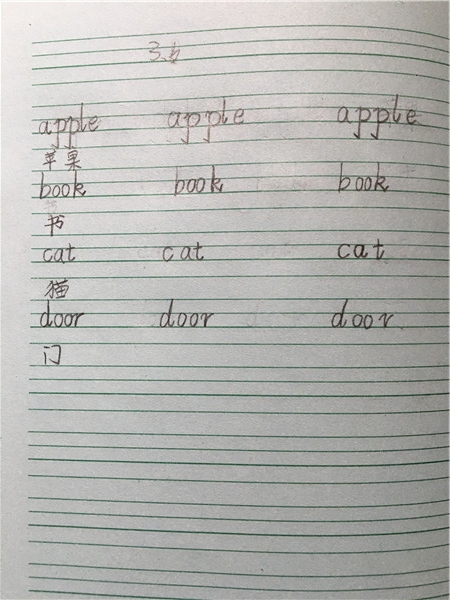 apple apple apple
苹果
book book book
书
cat cat cat
猫
door door door
门